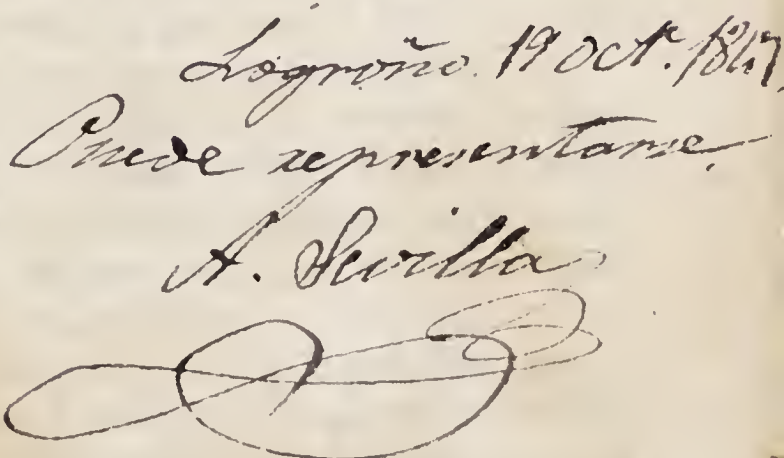 Logroño. 19 Oct.e 1867.
Puede representarse.
A. Sevilla